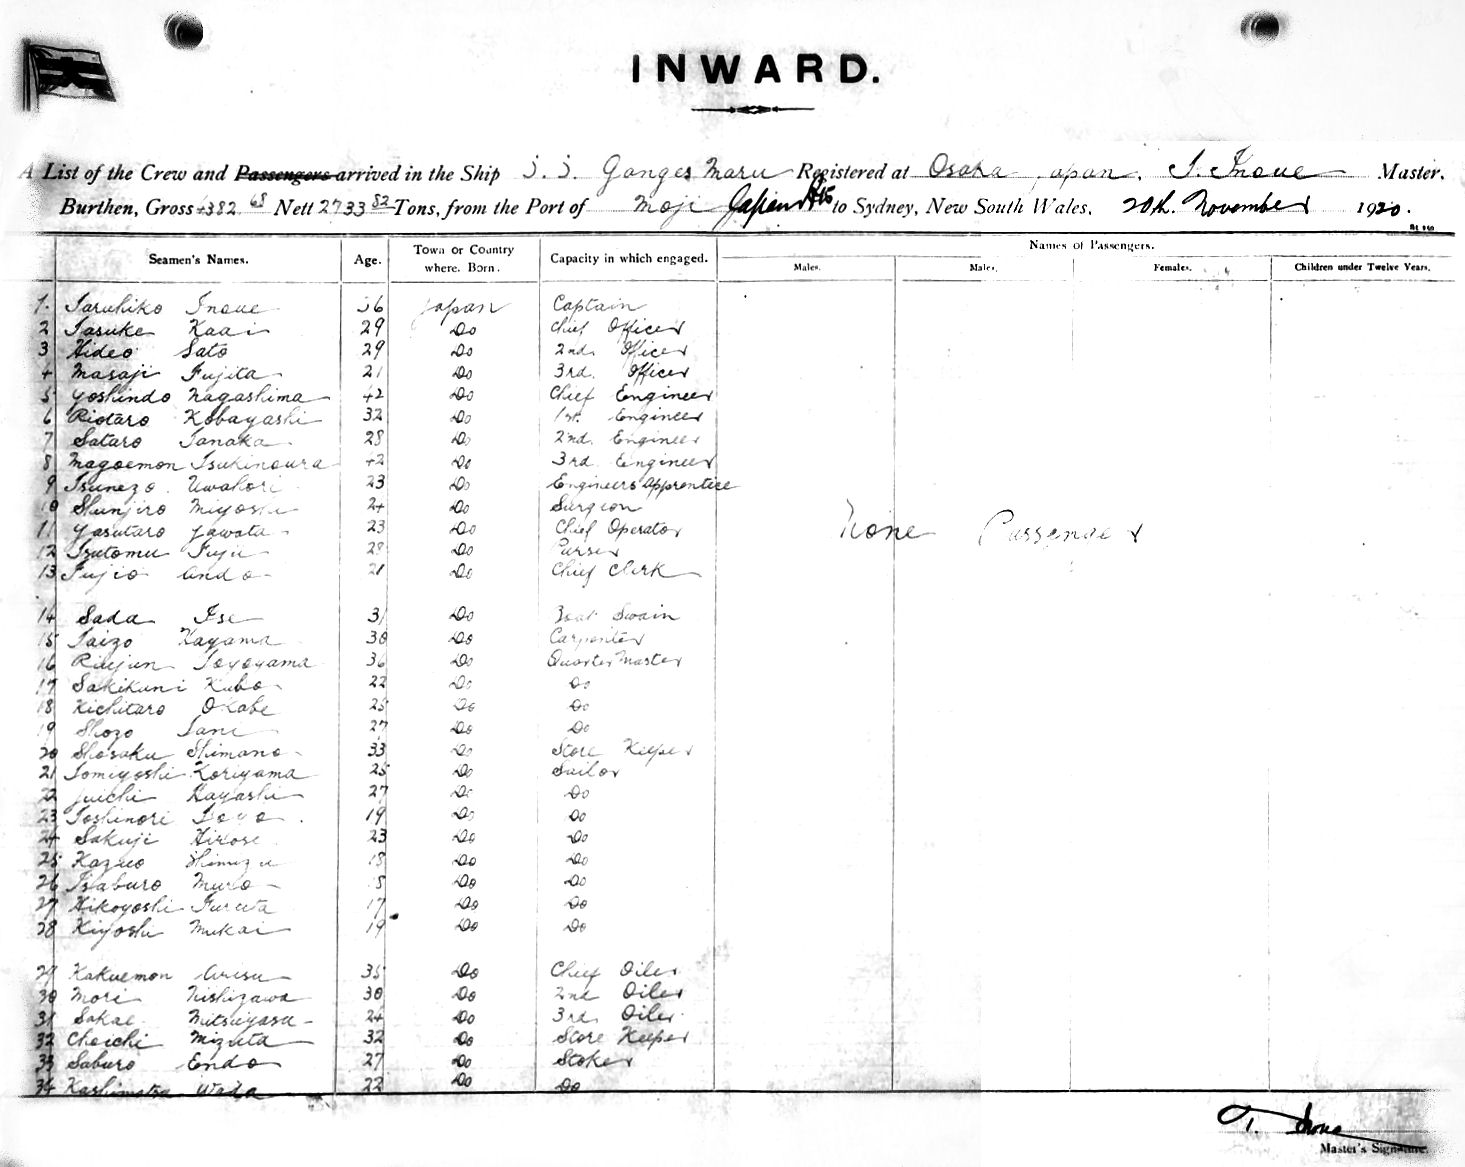 INWARD.
A List of the Crew and Passengers arrived in the Ship S.S. Ganges Maru Registered at Osaka Japan, T. Inoue Master,
Burthen, Gross 4382.68 Nett 2733 82 Tons, from the Port of Moji Japan to Sydney, New South Wales, 20th. November 1920.
Seamen's Names. Age. Town or Country where Born. Capacity in which engaged. Names of Passengers.
Males. Males. Females. Children under Twelve Years.
1. Taruhiko Inoue 36 Japan Captain
2 Tasuke Kaai 29 Do Chief Officer
3 Hideo Sato 29 Do 2nd. Officer
4 Masaji Fujita 21 Do 3rd. Officer
5 Yoshindo Nagashima 42 Do Chief Engineer
6 Riotaro Kobayashi 32 Do 1st. Engineer
7 Sataro Tanaka 28 Do 2nd. Engineer
8 Magoemon Tsukinoura 42 Do 3rd Engineer
9 Tsunezo Uwahori 23 Do Engineers Apprentice
10 Shunjiro Miyoshi 24 Do Surgeon
11 Yasutaro Yawata 23 Do Chief Operator
None Passenger
12 Tsutomu Fujii 28 Do Purser
13 Fujio Ando 21 Do Chief Clerk
14 Sada Ise 31 Do Boat Swain
15 Taizo Kayama 30 Do Carpenter
16 Riujun Toyoyama 36 Do Quarter Master
17 Sakikuni Kubo 22 Do Do
18 Kichitaro Okabe 25 Do Do
19 Shozo Tani 27 Do Do
20 Shosaku Shimano 33 Do Store Keeper
21 Tomiyoshi Koriyama 25 Do Sailor
22 Juichi Hayashi 27 Do Do
23 Toshinori Toyo 19 Do Do
24 Sakuji Hirose 23 Do Do
25 Kazuo Shimizu 18 Do Do
26 Isaburo Muro 18 Do Do
27 Hikoyoshi Furuta 17 Do Do
28 Kiyoshi Mukai 19 Do Do
29 Kakuemon Arisu 35 Do Chief Oiler
30 Mori Nishizawa 30 Do 2nd Oiler
31 Sakae Mitsuyasu 24 Do 3rd. Oiler
32 Choichi Mizuta 32 Do Store Keeper
33 Saburo Endo 27 Do Stoker
34 Kashimatsu Wada 22 Do Do
T. Inoue
Master's Signature.